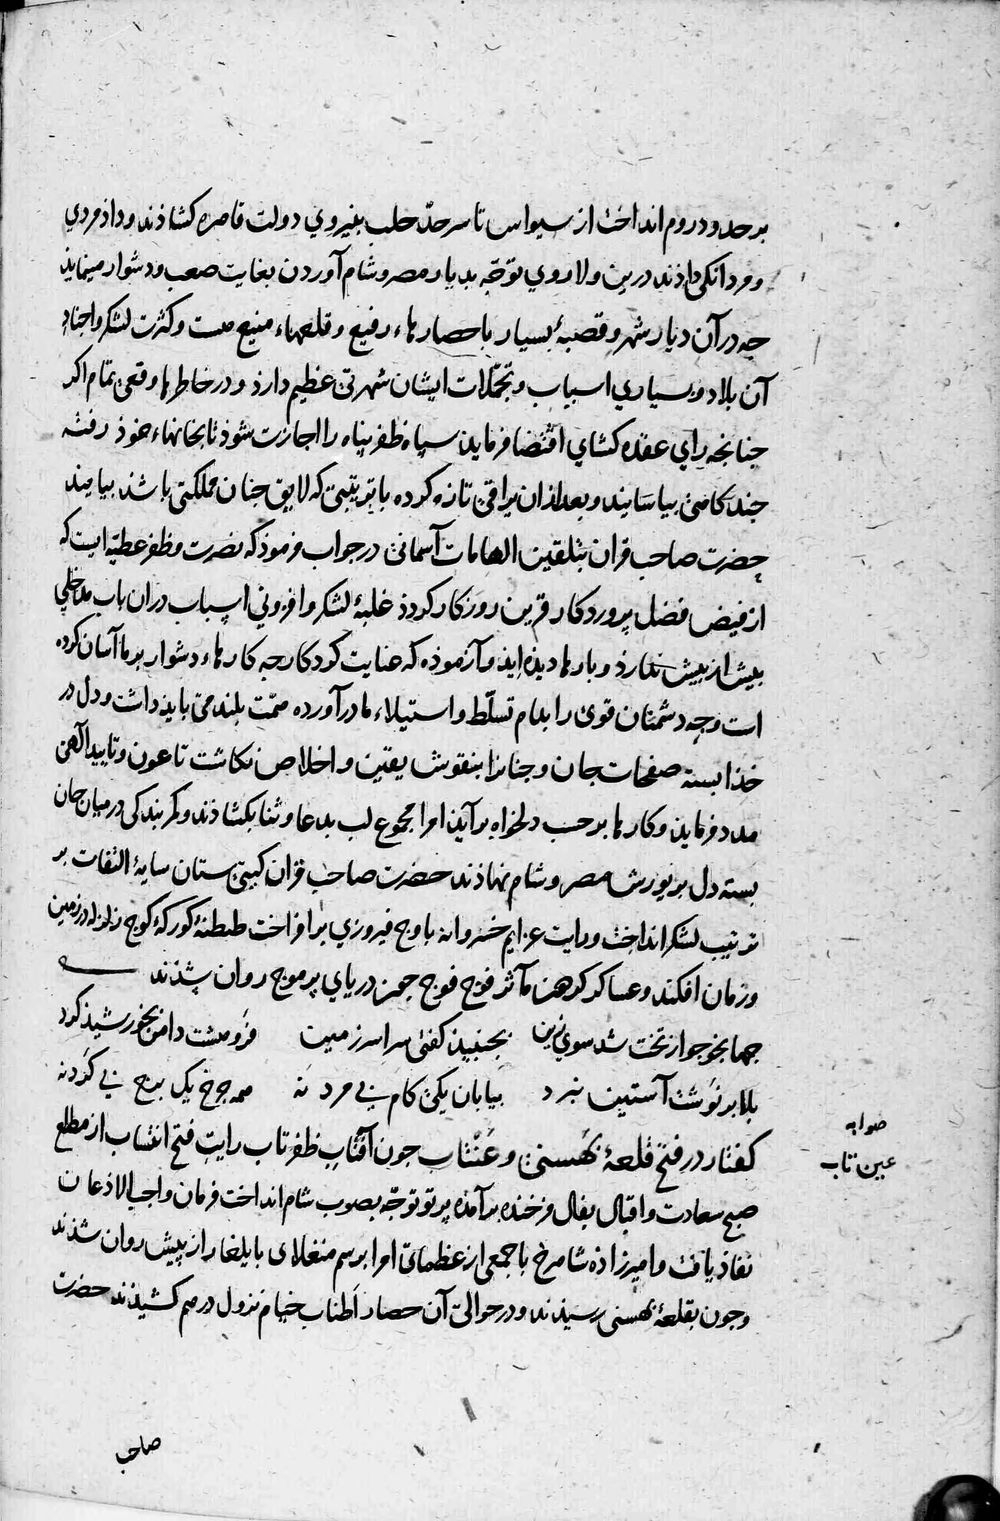 بر حدود روم انداخت از سیواس تا سرحدّ حلب بنیروی دولت قاهره کشاذند و داذ مردی
و مردانکی داذند درین ولا روی توجّه بدیار مصر و شام آوردن بغایت صعب و دشوار مینماید
چه در آن دیار شهر و قصبهٔ بسیار با حصارهاء رفیع و قلعهاء منیع هست و کثرت لشکر و اجناد
آن بلاد و بسیاری اسباب و تجمّلات ایشان شهرتی عظیم دارذ و در خاطرها وقعی تمام اکر
جنانجه رای عقده کشای اقتضا فرماید سپاه ظفر پناه را اجازت شوذ تا بخانهاء خوذ رفته
جند کاهی بیاسایند و بعد از ان یراقی تازه کرده با ترتیبی که لایق جنان مملکتی باشد بیایند
حضرت صاحب قران بتلقین الهامات آسمانی در جواب فرموذ که نصرت و ظفر عطیّه ایست که
از فیض فضل پروردکار قرین روزکار کردذ غلبهٔ لشکر و افزونی اسباب دران باب مدخلی
بیش از بیش ندارذ و بارها دیذه ایذ و آزموذه که عنایت کردکار جه کارهاء دشوار بر ما آسان کرده
است وجه دشمنان قوی را بدام تسلّط و استیلاء ما درآورده همّت بلند می بایذ داشت و دل در
خذا بسته صفحات جان و جنانرا بنقوش یقین و اخلاص نکاشت تا عون و تایید الهی
مدد فرماید و کارها بر حسب دلخواه برآیذ امرا مجموع لب بدعا و ثنا بکشاذند و کمر بندکی در میان جان
بسته دل بر یورش مصر و شام نهاذند حضرت صاحب قران کیتی ستان سایهٔ التفات بر
ترتیب لشکر انداخت و رایت عزایم خسروانه باوج فیروزی برافراخت طنطنهٔ کورکهٔ کوچ زلزله در زمین
و زمان افکند و عساکر کردون مآثر فوج فوج جون دریای پرموج روان شذند
جهانجو جو از تخت شد سوی زین بجنبیذ کفتی سراسر زمین فروهشت دامن بخورشیذ کرد
بلا بر نوشت آستین نبرد بیابان یکی کام پی مرد نه همه جرخ یک برج پی کرد نه
کفتار در فتح قلعهٔ بهسنی و عنتاب جون آفتاب ظفر تاب رایت فتح انتساب از مطلع
صبح سعادت و اقبال بفال فرخنده برآمذه پرتو توجّه بصوب شام انداخت فرمان واجب الاذعان
نفاذ یافت و امیرزاذه شاهرخ با جمعی از عظمای امرا برسم منغلای بایلغار از پیش روان شذند
و جون بقلعهٔ بهسنی رسیذند و در حوالی آن حصار اطناب خیام نزول در هم کشیذند حضرت
صوابه
عین تاب
صاحب